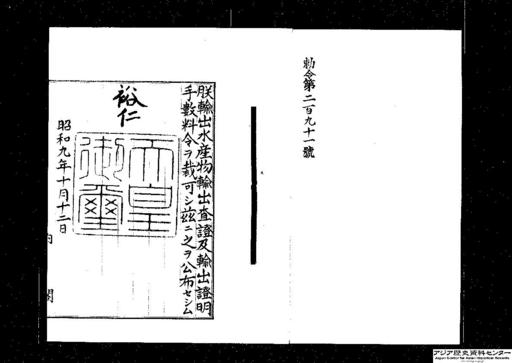 勅令第二百九十一號
朕輸出水産物輸出査證及輸出證明
手數料令ヲ裁可シ茲ニ之ヲ公布セシム
裕仁
天皇御璽
昭和九年十月十二日
内閣
アジア歴史資料センター
Japan Center for Asian Historical Records